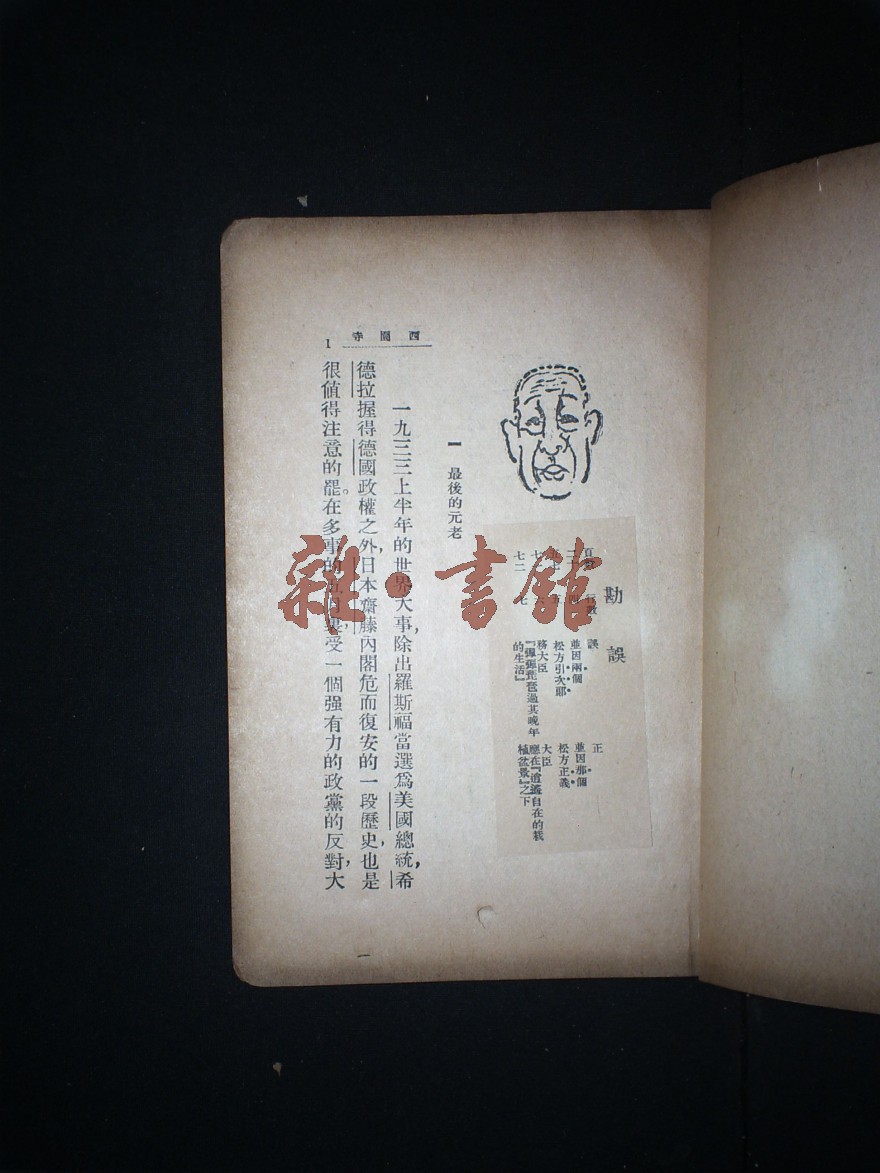 西園寺 1
一 最後的元老
一九三三上半年的世界大事，除出羅斯福當選爲美國總統，希
德拉握得德國政權之外，日本齋藤內閣危而復安的一段歷史，也是
很值得注意的罷。在多事的五月裏，受一個强有力的政黨的反對，大
一
勘誤
頁數 行數 誤 正
並因兩個 並因那個
松方引次郎 松方正義
七 務大臣 大臣
七二 七 『彈彈琵琶過其晚年的生活』 應在『逍遙自在的栽植盆景』之下
雜·書館